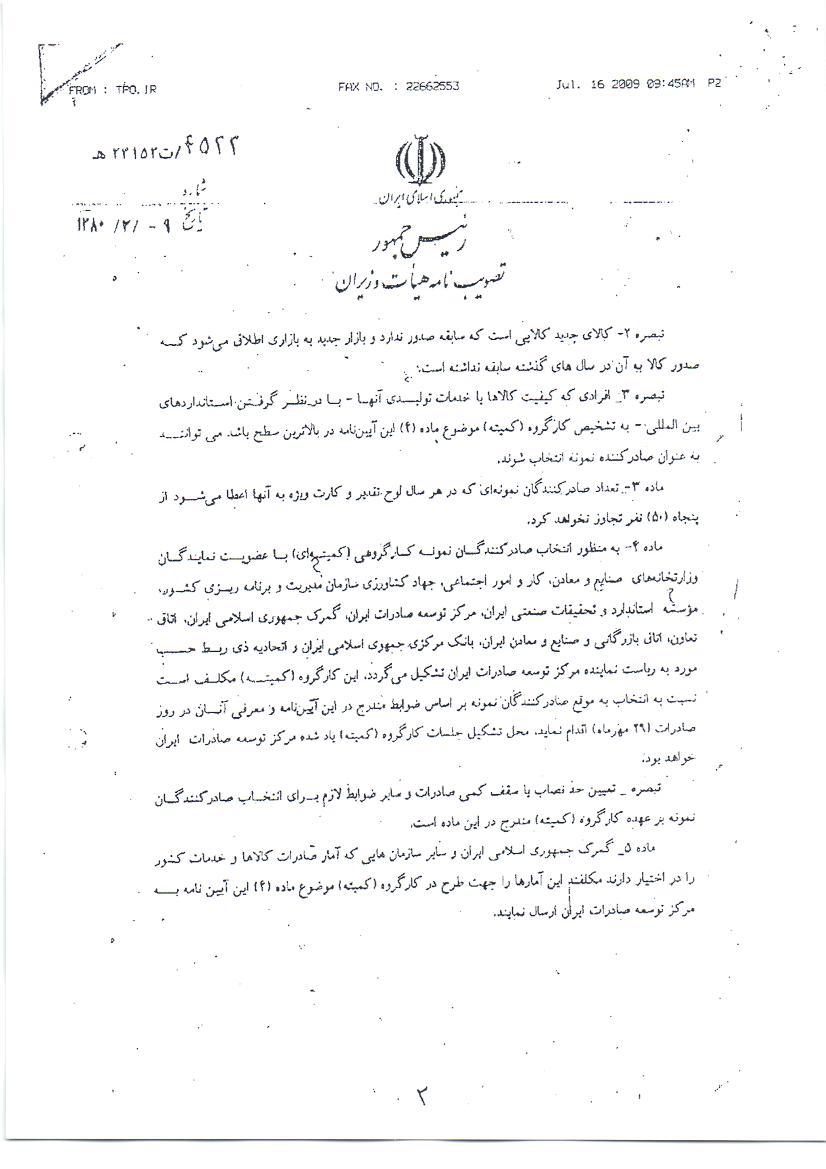 FROM : TPO.IR
FAX NO. : 22662553
Jul. 16 2009 09:45AM P2
۴۵۲۲/ت۲۳۱۵۲ هـ
شماره
تاریخ ۹ - /۲/ ۱۳۸۰
جمهوری اسلامی ایران
رئیس جمهور
تصویب نامه هیأت وزیران
تبصره ۲- کالای جدید کالایی است که سابقه صدور ندارد و بازار جدید به بازاری اطلاق می‌شود کـــه
صدور کالا به آن در سال های گذشته سابقه نداشته است.
تبصره ۳_ افرادی که کیفیت کالاها یا خدمات تولیدی آنهـا - بـا در نظـر گرفتـن استانداردهای
بین المللی - به تشخیص کارگروه (کمیته) موضوع ماده (۴) این آیین‌نامه در بالاترین سطح باشد می تواننــد
به عنوان صادرکننده نمونه انتخاب شوند.
ماده ۳- تعداد صادرکنندگان نمونه‌ای که در هر سال لوح تقدیر و کارت ویژه به آنها اعطا می‌شــود از
پنجاه (۵۰) نفر تجاوز نخواهد کرد.
ماده ۴- به منظور انتخاب صادرکنندگـان نمونه کـارگروهی (کمیته‌ای) بـا عضویـت نماینـدگـان
وزارتخانه‌های صنایع و معادن، کار و امور اجتماعی، جهاد کشاورزی سازمان مدیریت و برنامه ریـزی کشـور،
مؤسسه استاندارد و تحقیقات صنعتی ایران، مرکز توسعه صادرات ایران، گمرک جمهوری اسلامی ایران، اتاق
تعاون، اتاق بازرگانی و صنایع و معادن ایران، بانک مرکزی جمهوی اسلامی ایران و اتحادیه ذی ربـط حسـب
مورد به ریاست نماینده مرکز توسعه صادرات ایران تشکیل می‌گردد. این کارگروه (کمیتــه) مکلـف اسـت
نسبت به انتخاب به موقع صادرکنندگان نمونه بر اساس ضوابط مندرج در این آیین‌نامه و معرفی آنــان در روز
صادرات (۲۹ مهرماه) اقدام نماید. محل تشکیل جلسات کارگروه (کمیته) یاد شده مرکز توسعه صادرات ایران
خواهد بود.
تبصره _ تعیین حد نصاب یا سقف کمی صادرات و سایر ضوابط لازم بــرای انتخـاب صادرکنندگـان
نمونه بر عهده کارگروه (کمیته) مندرج در این ماده است.
ماده ۵_ گمرک جمهوری اسلامی ایران و سایر سازمان هایی که آمار صادرات کالاها و خدمات کشور
را در اختیار دارند مکلفند این آمارها را جهت طرح در کارگروه (کمیته) موضوع ماده (۴) این آیین نامه بــه
مرکز توسعه صادرات ایران ارسال نمایند.
۲